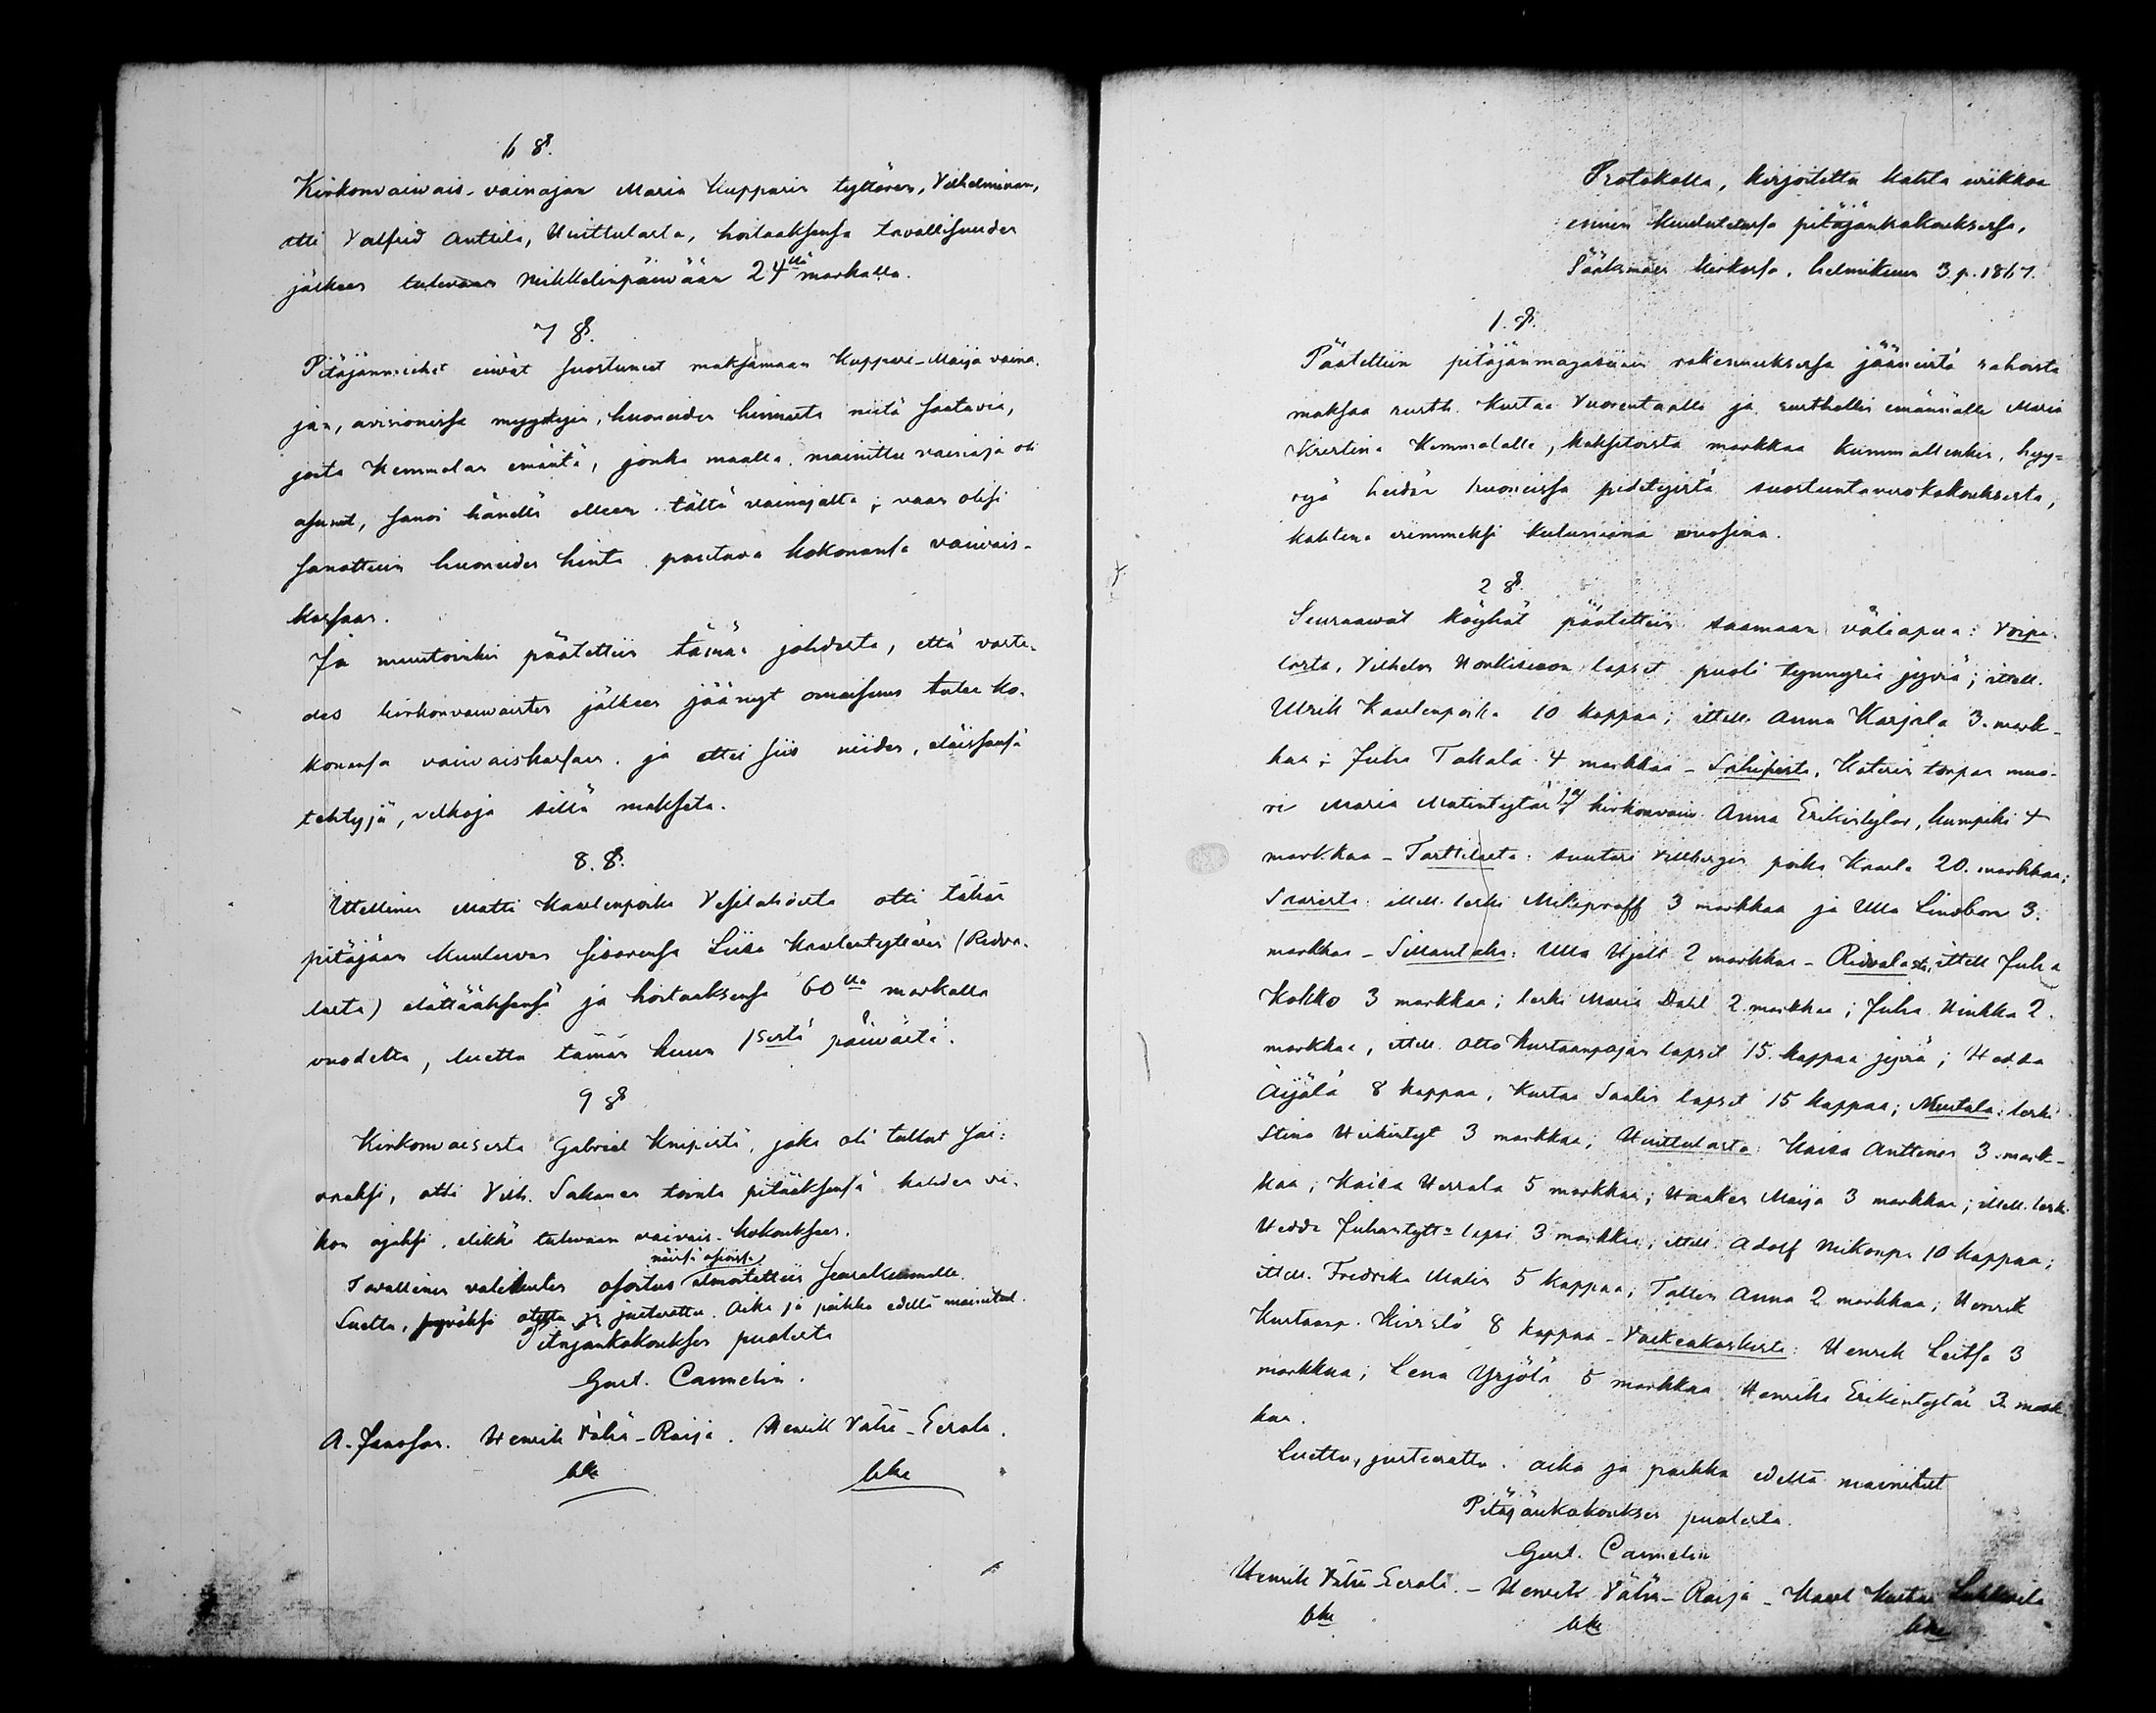 6 §.
Kirkonvaivais-vainajan Maria Kupparin tyttären, Vilhelminan,
otti Valfrid Anttila, Uittulasta, hoitaaksensa tavallisuuden
jälkeen tulevaan Mikkelinpäivään 24llä markalla.
7 §.
Pitäjänmiehet eivät suostuneet maksamaan Kuppari-Maija vaina-
jan, avisionissa myytyjen, huoneiden hinnasta niitä saatavia,
joita Kemmolan emäntä, jonka maalla mainittu vainaja oli
asunut, sanoi hänellä olleen tältä vainajalta; vaan olisi
sanottuin huoneiden hinta pantava kokonansa vaivais-
kassaan.
Ja muutoinkin päätettiin tämän johdosta, että vasta-
des kirkonvaivaisten jälkeen jäänyt omaisuus tulee ko-
konansa vaivaiskassaan, ja ettei siis niiden, eläissänsä
tehtyjä, velkoja sillä makseta.
8. §.
Itsellinen Matti Kaarlenpoika Vesilahdesta otti tähän
pitäjään kuuluvan sisarensa Liisa Kaarlentyttären (Ridva-
lasta) elättääksensä ja hoitaaksensa 60lla markalla
vuodelta, luettu tämän kuun 1sestä päivästä.
9 §
Kirkonvaisesta Gabriel Knipistä, joka oli tullut sai-
raaksi, otti Vilh. Sakanen toimta pitääksensä kahden vi-
kon ajaksi, elikkä tulevaan vaivais-kokoukseen.
näissä asioissa
Tavallinen valitusten osoitus ilmoitettiin seurakunnalle.
Luettu, hyväksi otettu ja justeerattu. Aika ja paikka edellä mainitut.
Pitäjänkokouksen puolesta
Gust. Cannelin.
A. Janssan. Henrik Vähä-Raija. Henrik Vähä-Eerola.
lke lke
Protokolla, kirjoitettu kahta viikkoa
ennen kuulutetussa pitäjänkokouksessa,
Sääksmäen kirkossa, helmikuun 3 p. 1867.
1. §.
Päätettiin pitäjänmagasiinin rakennuksessa jääneistä rahoista
maksaa rusth. Kustaa Vuorentaalle ja rusthollin emännälle Maria
Kristina Kemmolalle, kaksitoista markkaa kummallenkin, hyy-
ryä heidän huoneissa pidetyistä suostuntaverokokouksista,
kahtena viimmeksi kuluneina vuosina.
2 §.
Seuraawat köyhät päätettiin saamaan väliapua: Voipa-
lasta, Vilhelm Honkisuon lapset puoli tynnyriä jyviä; itsell.
Ulrik Kaarlenpoika 10 kappaa; itsell. Anna Karjala 3. mark-
kaa; Juha Takala 4 markkaa - Sakista, Katerin torpan muo-
ri Maria Matintytär ja kirkonvaiv. Anna Erikintytär, kumpiki 4
markkaa - Tarttilasta: suutari Villbergin poika Kaarle 20. markkaa;
Saarista: itsell. leski Mikeprooff 3 markkaa ja Ulla Lindbom 3.
markkaa - Sillantaka: Ulla Hjelt 2 markkaa - Ridvalasta, itsell Juha
Kokko 3 markkaa; leski Maria Dahl 2. markkaa; Juha Hinkka 2.
markkaa, itsell. Otto Kustaanpojan lapset 15. kappaa jyviä; Hedda
Äijälä 8 kappaa, Kustaa Saalin lapset 15 kappaa; Metsälä: leski
Stina Heikintyt 3 markkaa; Uittulasta: Kaisa Anttinen 3. mark-
kaa; Kaisa Herrala 5 markkaa; Haaken Maija 3 markkaa; itsell. leski
Hedda Juhantytt= lapsi 3 markkaa; itsell. Adolf Mikonp. 10 kappaa;
itsell. Fredrika Malin 5 kappaa; Tallin Anna 2 markkaa; Henrik
Kustaanp. Kivistö 8 kappaa - Valkeakoskista: Henrik Leitsa 3
markkaa; Lena Yrjölä 5 markkaa Henrika Erikintytär 3 mark
kaa.
Luettu, justeerattu. Aika ja paikka edellä mainitut
Pitäjänkokouksen puolesta.
Gust. Cannelin
Henrik Vähä-Eerola. - Henrik Vähä-Raija - Kaarl Kustaa
lke lke lke